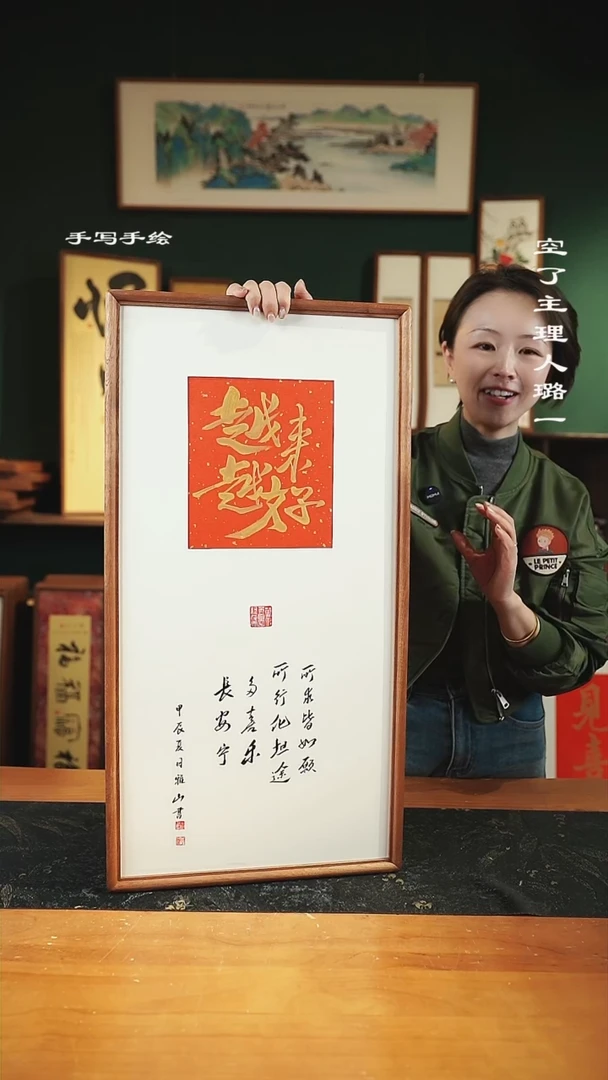 手写手绘
空了主理人璐一
越来
越好
所求皆如愿
所行化坦途
多喜乐
長安宁
甲辰夏月雅山書
LE PETIT
PRINCE
福福福福
見喜